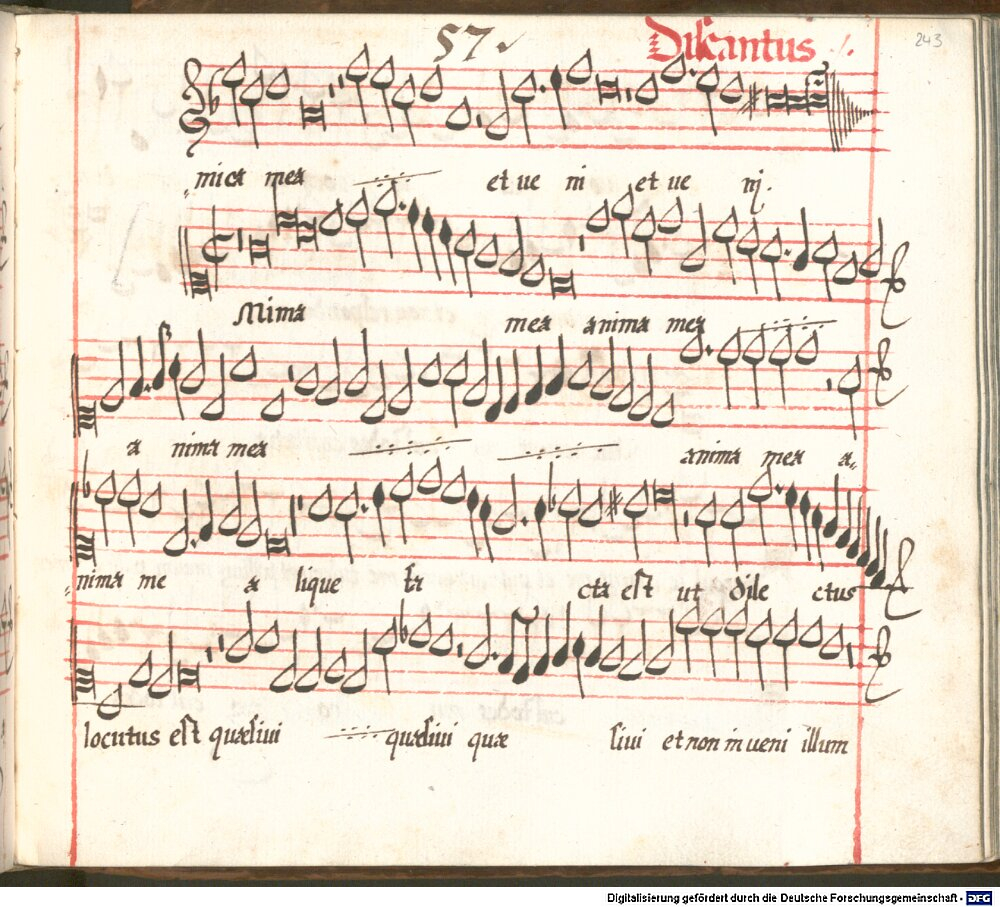 57
Discantus
243
mica mea et ve ni et ve nj.
Anima mea anima mea
a nima mea anima mea a-
nima me a lique fa cta est ut dile ctus
locutus est quæsivi quæsivi quæ sivi et non inveni illum
Digitalisierung gefördert durch die Deutsche Forschungsgemeinschaft - DFG